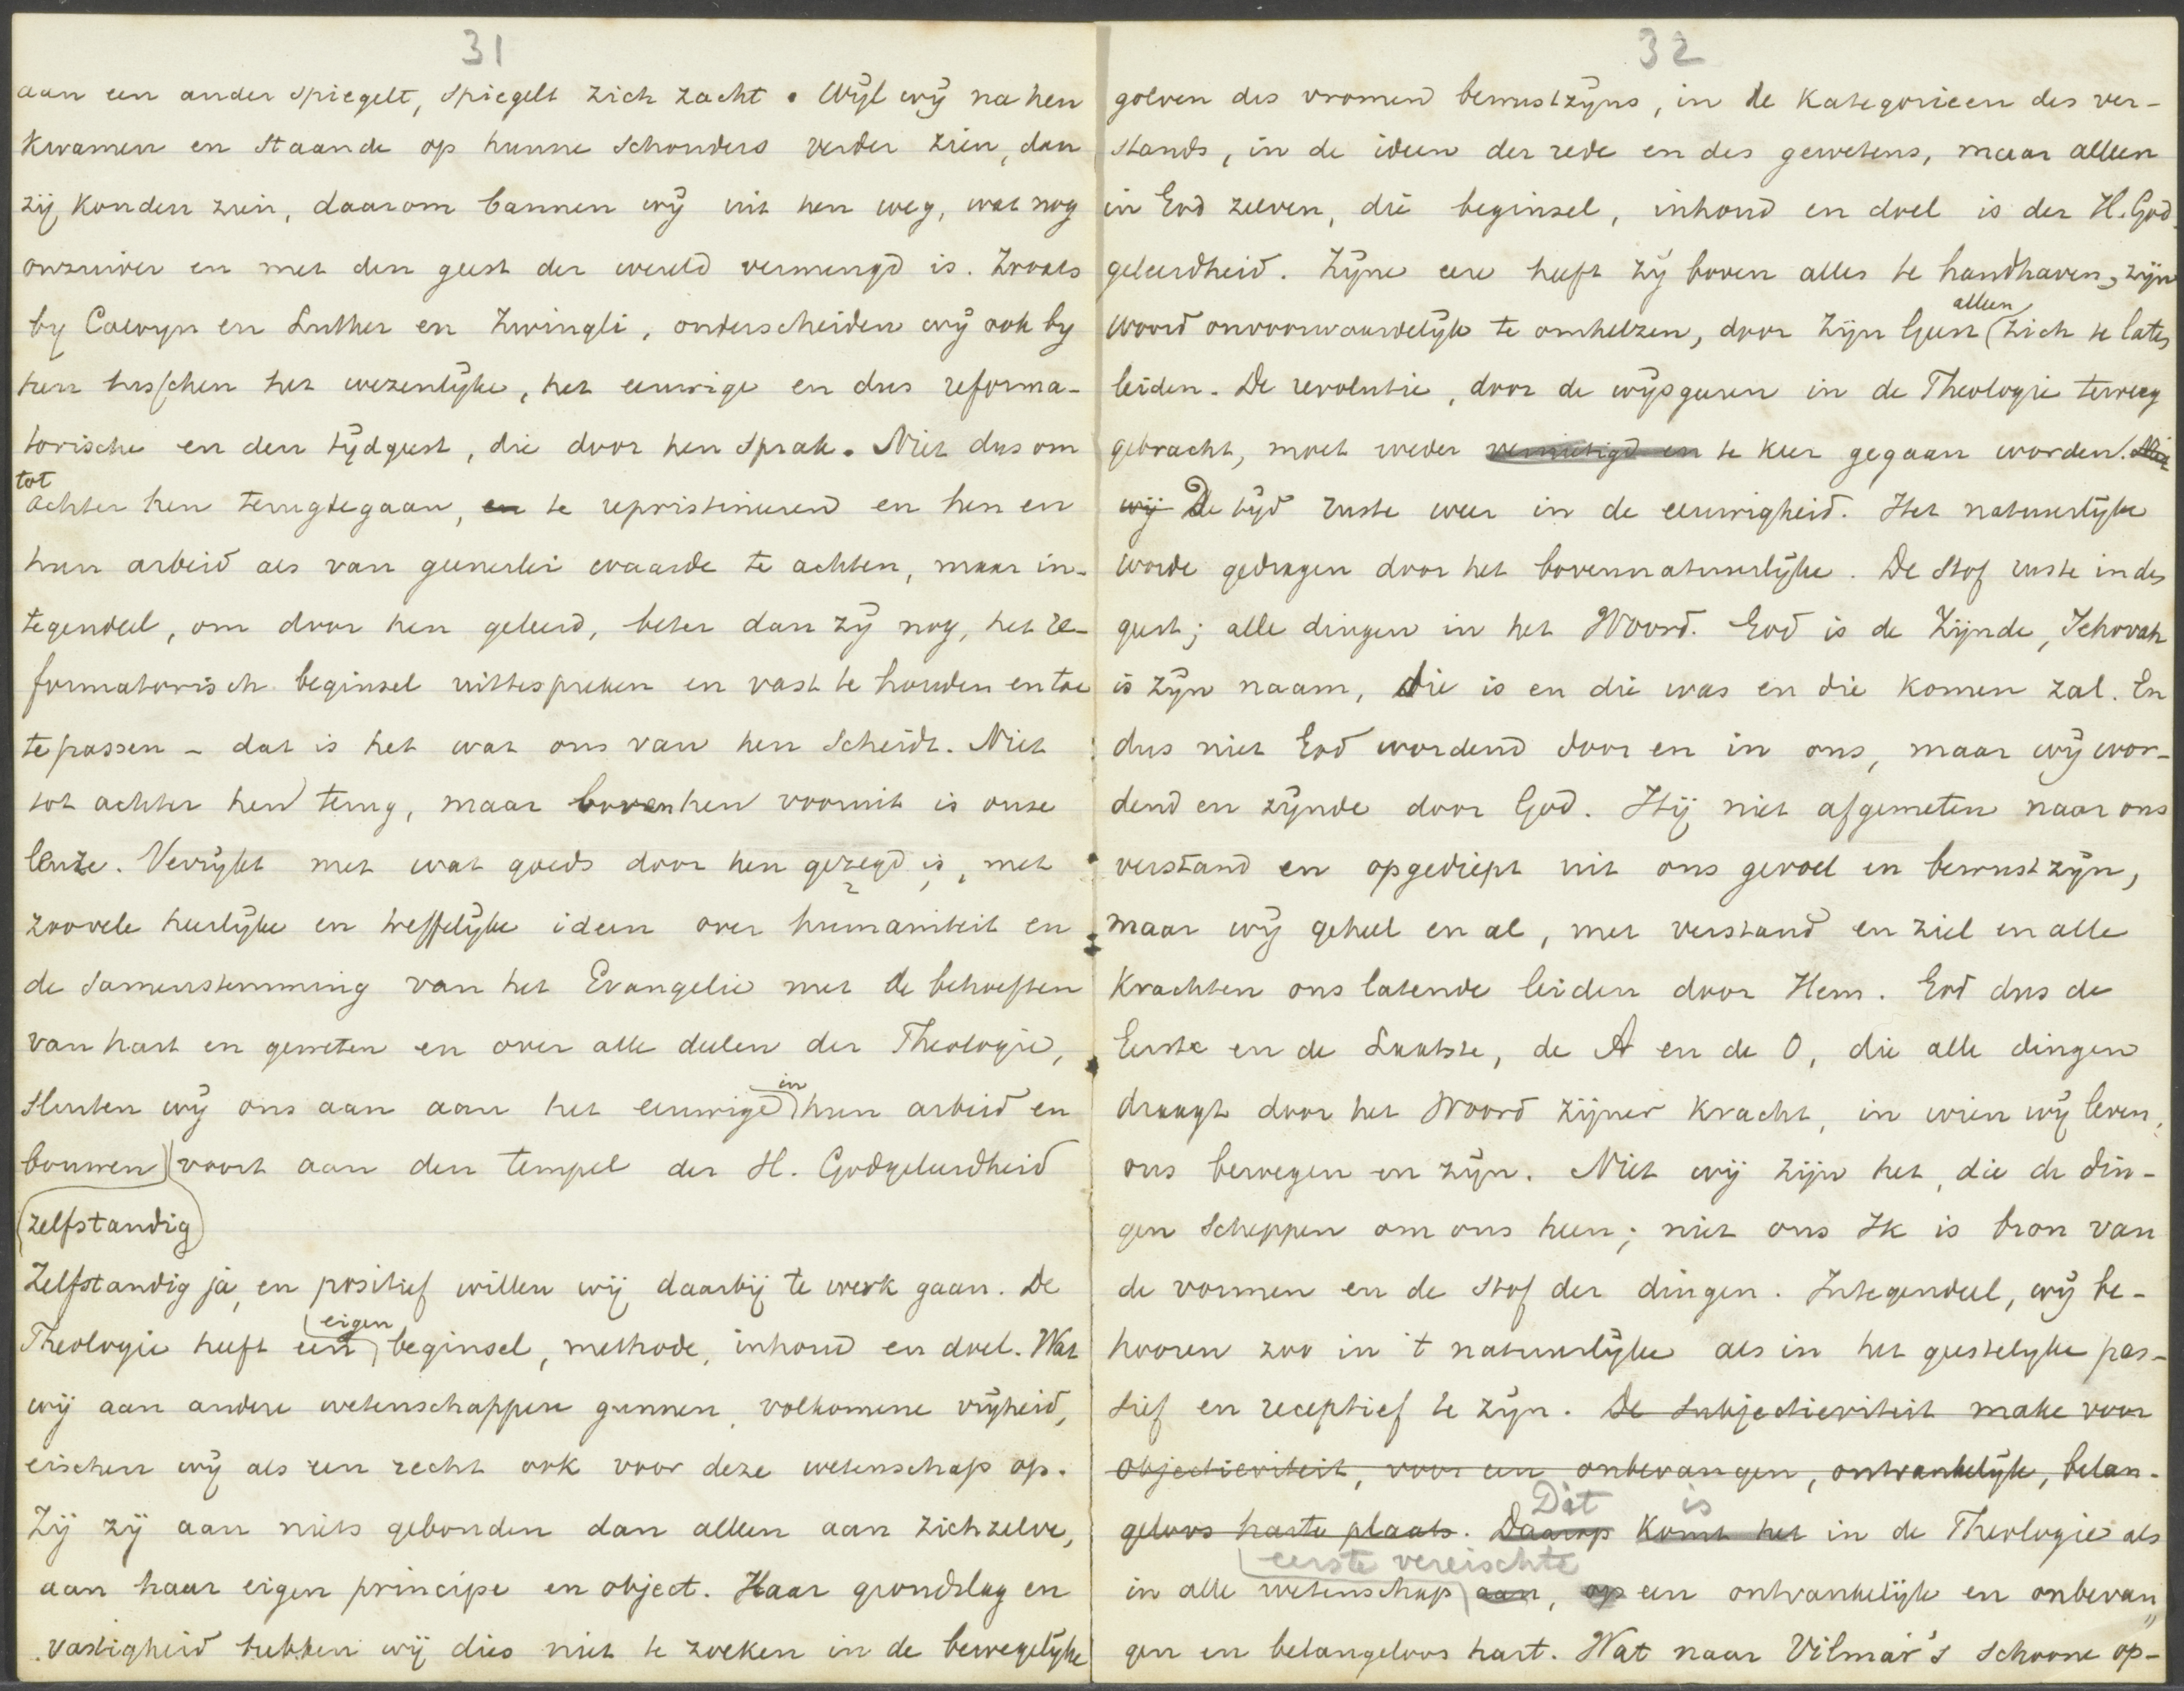 31
aan een ander spiegelt, spiegelt zich zacht. Wijl wij na hen
kwamen en staande op hunne schouders verder zien, dan
zij konden zien, daarom bannen wij uit hen weg, wat nog
onzuiver en met den geest der wereld vermengd is. Zooals
by Calvyn en Luther en Zwingli, onderscheiden wij ook by
hen tusschen het wezenlijke, het eeuwige en dus reforma-
torische en den tijdgeest, die door hen sprak. Niet dus om
tot
achter hen terugtegaan, en te repristineren en hen en
hun arbeid als van geenerlei waarde te achten, maar in-
tegendeel, om door hen geleerd, beter dan zij nog, het re-
formatorisch beginsel uittespreken en vast te houden en toe
te passen - dat is het wat ons van hen scheidt. Niet
tot achter hen terug, maar boven hen vooruit is onze
leuze. Verrijkt met wat goeds door hen gezegd is, met
zoovele heerlijke en treffelijke ideen over humaniteit en
de samenstemming van het Evangelie met de behoeften
van hart en geweten en over alle deelen der Theologie,
in
sluiten wij ons aan aan het eeuwige hun arbeid en
bouwen voort aan den tempel der H. Godgeleerdheid
zelfstandig
Zelfstandig ja, en positief willen wij daarbij te werk gaan. De
eigen
Theologie heeft een beginsel, methode, inhoud en doel. Wat
wij aan andere wetenschappen gunnen, volkomene vrijheid,
eischen wij als een recht ook voor deze wetenschap op.
Zij zij aan niets gebonden dan alleen aan zichzelve,
aan haar eigen principe en object. Haar grondslag en
vastigheid hebben wij dies niet te zoeken in de bewegelijke
32
golven des vromen bewustzijns, in de kategorieen des ver-
stands, in de ideen der rede en des gewetens, maar alleen
in God zelven, die beginsel, inhoud en doel is der H. God-
geleerdheid. Zijne eere heeft zij boven alles te handhaven, zijn
alleen
woord onvoorwaardelijk te omhelzen, door Zijn Geest zich te laten
leiden. De revolutie, door de wijsgeeren in de Theologie teweeg
gebracht, moet weder vernietigd en te keer gegaan worden. Niet
wij De tijd ruste weer in de eeuwigheid. Het natuurlijke
worde gedragen door het bovennatuurlijke. De stof ruste in den
geest; alle dingen in het Woord. God is de Zijnde, Jehovah
is zijn naam, die is en die was en die komen zal. En
dus niet God wordend door en in ons, maar wij wor-
dend en zijnde door God. Hij niet afgemeten naar ons
verstand en opgediept uit ons gevoel en bewustzijn,
maar wij geheel en al, met verstand en ziel en alle
krachten ons latende leiden door Hem. God dus de
Eerste en de Laatste, de A en de O, die alle dingen
draagt door het Woord zijner kracht, in wien wij leven,
ons bewegen en zijn. Niet wij zijn het, die de din-
gen scheppen om ons heen; niet ons Ik is bron van
de vormen en de stof der dingen. Integendeel, wij be-
hooren zoo in 't natuurlijke als in het geestelijke pas-
sief en receptief te zijn. De subjectieviteit make voor
objectieviteit, voor een onbevangen, ontvankelijk, belan-
Dit is
geloos harte plaats. Daarop komt het in de Theologie als
eerste vereischte
in alle wetenschap aan, op een ontvankelijk en onbevan„
gen en belangeloos hart. Wat naar Vilmar's schoone op-